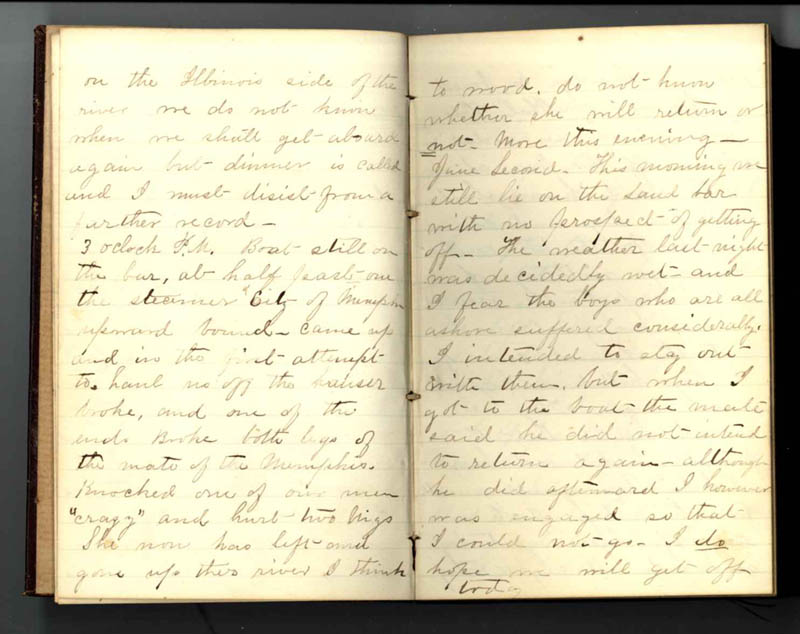 on the Illinois side of the
river we do not know
when we shall get aboard
again but dinner is called
and I must disist from a
further record -
3 oclock P.M. Boat still on
the bar, at half past one
the steamer "City of Memphis
upward bound - came up
and in the first attempt
to haul us off the hauser
broke, and one of the
ends Broke both legs of
the mate of the Memphis.
Knocked one of our men
"crazy" and hurt two
She now has left and
gone up the river I think
to wood. do not know
whether she will return or
not - More this evening -
June Second - This morning we
still lie on the Sand bar
with no prospect of getting
off - The weather last night
was decidedly wet - and
I fear the boys who are all
ashore suffered considerably.
I intended to stay out
with them, but when I
got to the boat the mate
said he did not intend
to return again - although
he did afterward I however
was engaged so that
I could not go - I do
hope we will get off
today